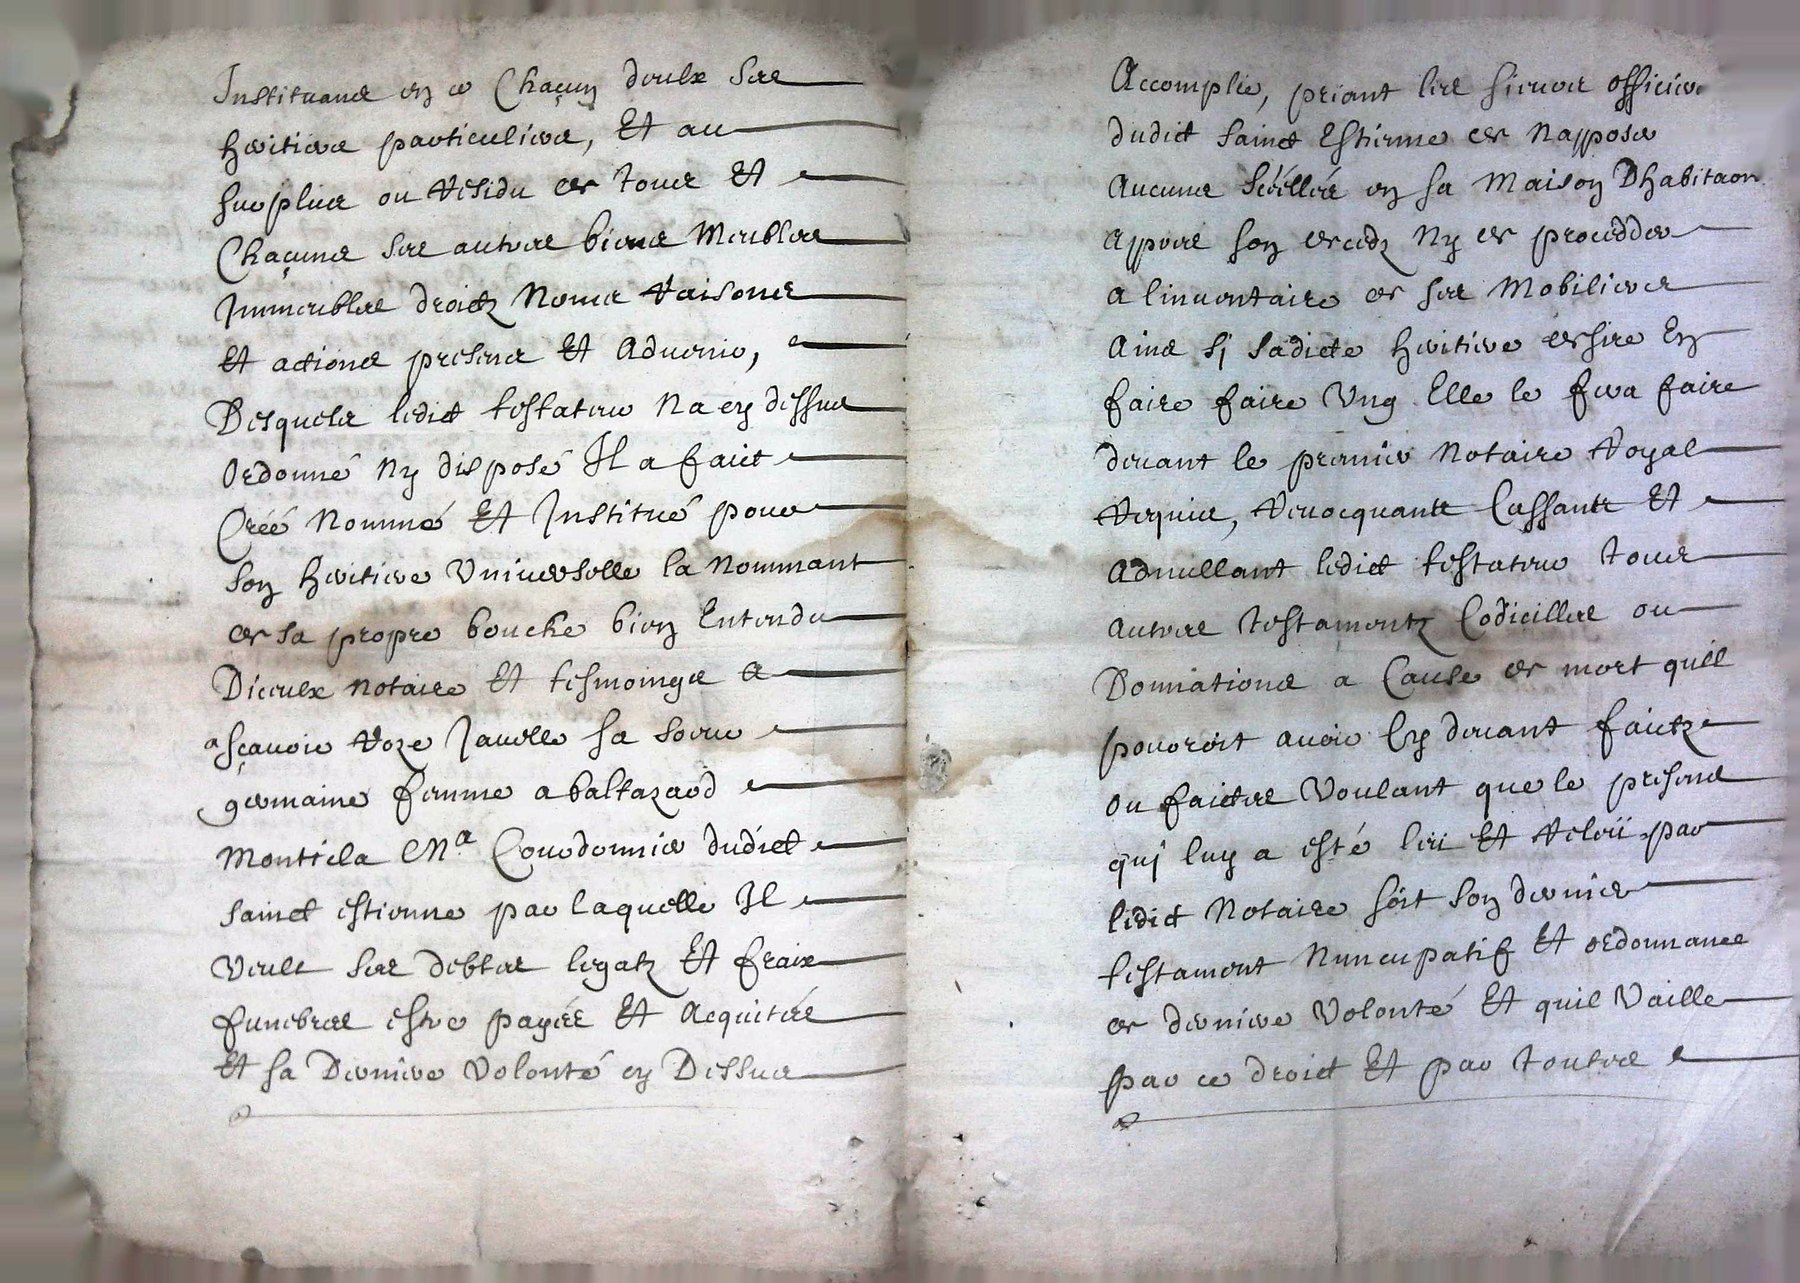 Instituant en ce Chaçun d'eulx ses
heritiers particuliers, Et au
surplus ou residu de tous Et
Chaçuns ses autres biens Meubles
Immeubles droictz Noms raisons
Et actions presens Et Advenir,
Desquels ledict testateur Na cy dessus
Ordonné Ny disposé Il a faict
Créé Nommé Et Institué pour
son heritiere Universelle la Nommant
de sa propre bouche bien Entendu
Diceulx notaire Et tesmoings A
asçavoir roze Javelle sa soeur
germaine femme a baltazard
Montiela Me Courdonnier dudict
sainct estienne par laquelle Il
Veult ses debtes legatz Et fraix
funebres estre payés Et Acquités
Et sa Derniere Volonté cy Dessus
Accomplie, priant les sieurs officiers
dudict sainct Estienne de Napposer
Aucuns scéellés en sa Maison Dhabitaon
Appres son decedz Ny de procedder
A linventaire de ses Mobiliers
Ains si sadicte heritiere desire En
faire faire Ung Elle le fera faire
devant le premier Notaire royal
requis, revocquante Cassante Et
Adnullant ledict testateur tous
Autres testamentz Codicilles ou
Donnations a Cause de mort quil
pouroit avoir Cy devant faictz
ou faictes Voulant que le presens
qui luy a esté leü Et releü par
ledict Notaire soit son dernier
testament Nuncupatif Et ordonnance
de derniere Volonté Et quil Vaille
par ce droict Et par toutes